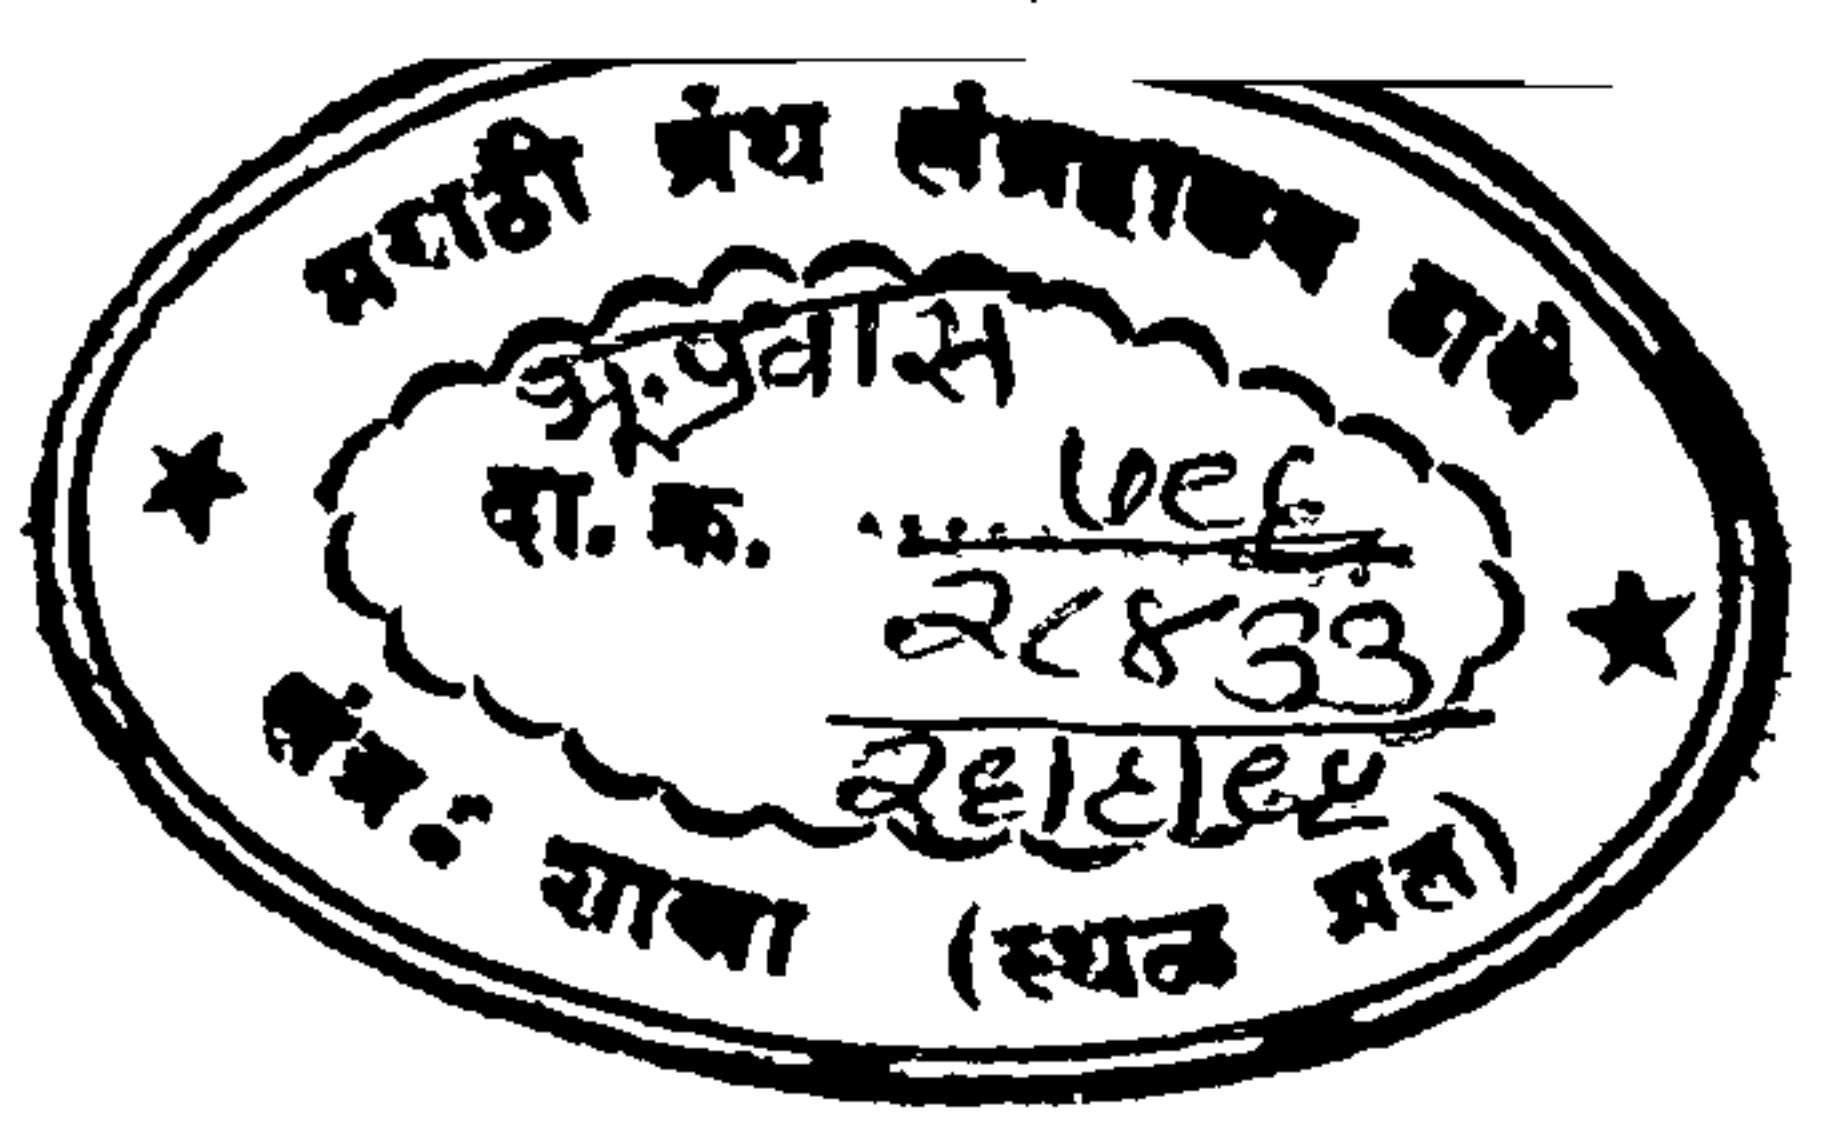 मराठी ग्रंथ संग्रहालय ठाणे
भू.प्रवास
दा. क्र. .... ७९६
२८४३३
२६।८।९५
शाखा (स्थळ प्रत)